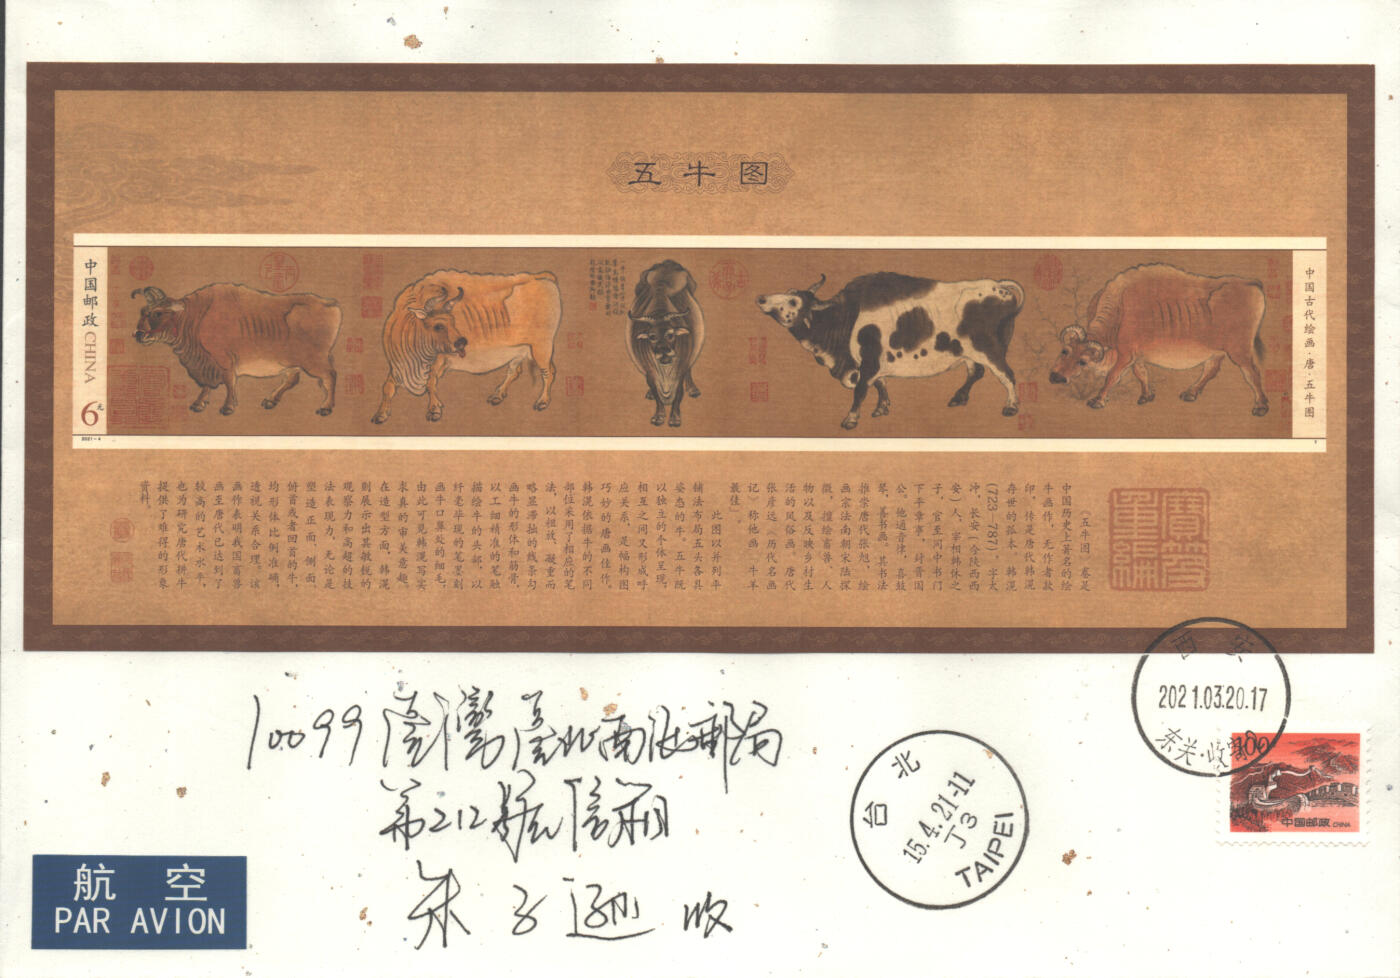 五牛图
中国邮政 CHINA
6元
2021-4
中国古代绘画·唐·五牛图
《五牛图》卷是
中国历史上著名的绘
牛画作，无作者款
印，传是唐代韩滉
存世的孤本。韩滉
(723—787)，字太
冲，长安（今陕西西
安）人，宰相韩休之
子，官至同中书门
下平章事，封晋国
公。他通音律，喜鼓
琴，善书画。其书法
推崇唐代张旭，绘
画宗法南朝宋陆探
微，擅绘畜兽、人
物以及反映乡村生
活的风俗画。唐代
张彦远《历代名画
记》称他画“牛羊
最佳”。
此图以并列平
铺法布局五头各具
姿态的牛。五牛既
以独立的个体呈现，
相互之间又形成呼
应关系，是幅构图
巧妙的唐画佳作。
韩滉依据牛的不同
部位采用了相应的笔
法，以粗放、凝重而
略显滞拙的线条勾
画牛的形体和筋骨，
以工细精准的笔触
描绘牛的头部，以
纤老毕现的笔墨刻
画牛口鼻处的细毛，
由此可见韩滉写实
求真的审美意趣。
在造型方面，韩滉
则展示出其敏锐的
观察力和高超的技
法表现力，无论是
塑造正面、侧面、
俯首或者回首的牛，
均形体比例准确，
透视关系合理。该
画作表明我国畜兽
画至唐代已达到了
较高的艺术水平，
也为研究唐代耕牛
提供了难得的形象
资料。
西安
2021.03.20.17
东关·收寄
100
中国邮政 CHINA
10099 台湾台北西河邮局
第212号信箱
朱子逊 收
台北
15.4.21-11
丁3
TAIPEI
航空
PAR AVION